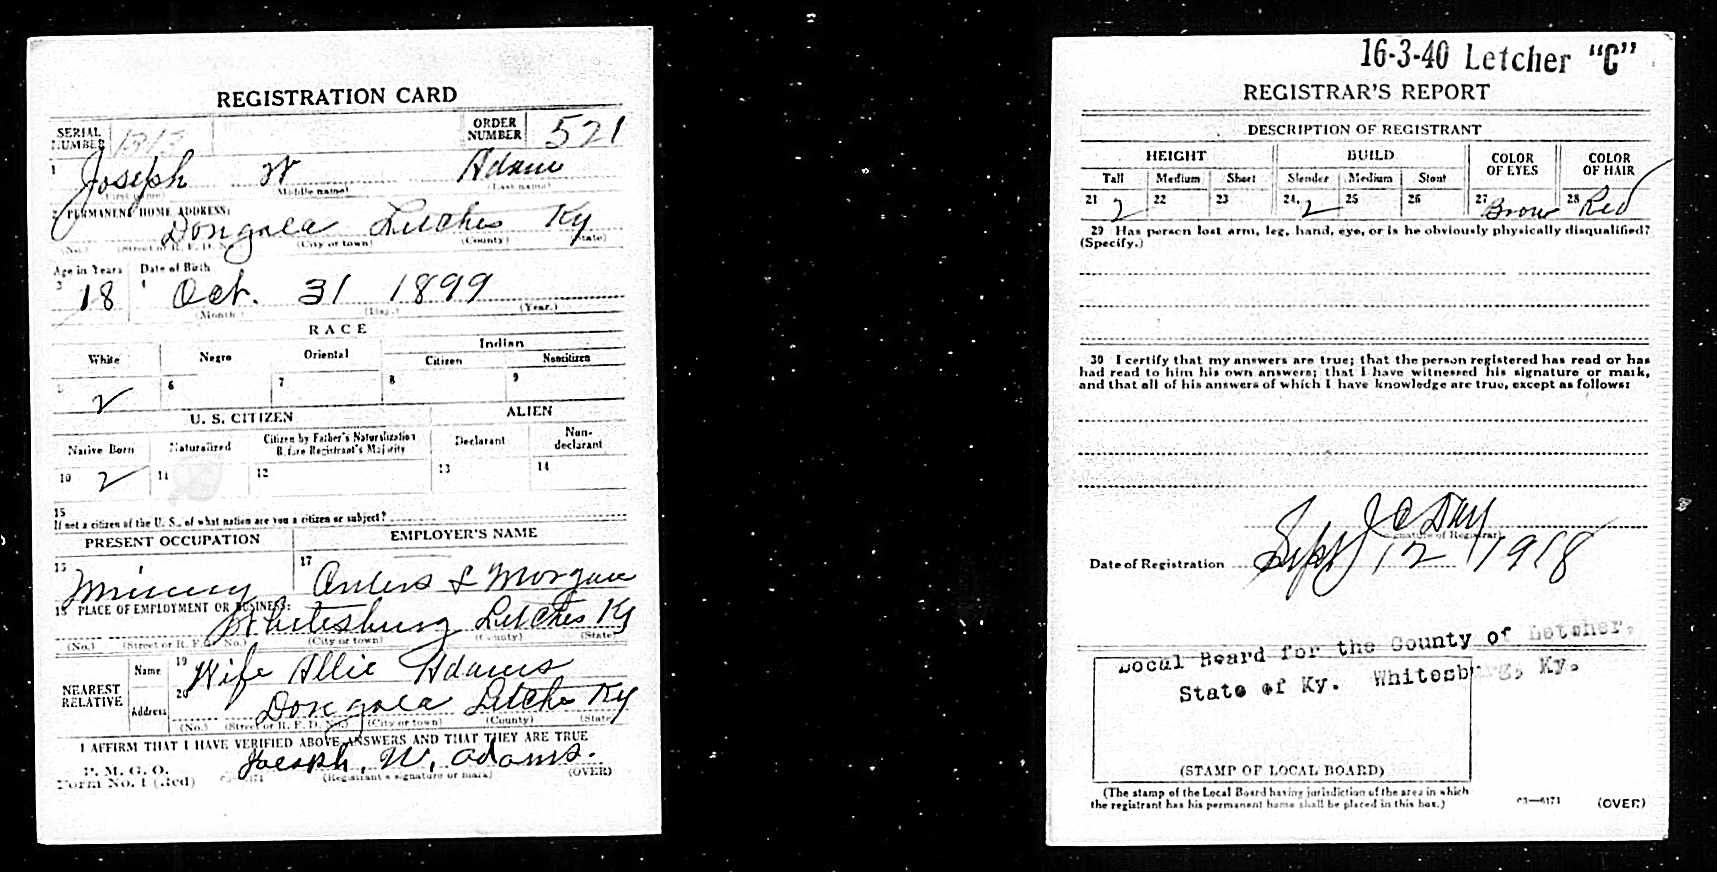 REGISTRATION CARD
SERIAL NUMBER 1313 ORDER NUMBER 521
1 Joseph W Adams
(First name) (Middle name) (Last name)
2 PERMANENT HOME ADDRESS:
Dongola Letcher Ky
(No.) (Street or R. F. D. No.) (City or town) (County) (State)
Age in Years Date of Birth
3 18 Oct. 31 1899
(Month.) (Day.) (Year.)
RACE
White Negro Oriental Indian
Citizen Noncitizen
5 6 7 8 9
U. S. CITIZEN ALIEN
Native Born Naturalized Citizen by Father's Naturalization Before Registrant's Majority Declarant Non-declarant
10 11 12 13 14
15
If not a citizen of the U. S., of what nation are you a citizen or subject?
PRESENT OCCUPATION EMPLOYER'S NAME
Mining 17 & Morgan
PLACE OF EMPLOYMENT OR BUSINESS:
Whitesburg Letcher Ky
(No.) (Street or R. F. D. No.) (City or town) (County) (State)
NEAREST RELATIVE Name 19 Wife Allie Adams
Address 20 Dongola Letcher Ky
(No.) (Street or R. F. D. No.) (City or town) (County) (State)
I AFFIRM THAT I HAVE VERIFIED ABOVE ANSWERS AND THAT THEY ARE TRUE
P. M. G. O.
Form No. 1 (Red) Joseph. W. adams.
(Registrant's signature or mark) (OVER)
16-3-40 Letcher "C"
REGISTRAR'S REPORT
DESCRIPTION OF REGISTRANT
HEIGHT BUILD COLOR OF EYES COLOR OF HAIR
Tall Medium Short Slender Medium Stout
21 22 23 24 25 26 27 Brow 28 Red
29 Has person lost arm, leg, hand, eye, or is he obviously physically disqualified?
(Specify.)
30 I certify that my answers are true; that the person registered has read or has
had read to him his own answers; that I have witnessed his signature or mark,
and that all of his answers of which I have knowledge are true, except as follows:
J C Day
(Signature of Registrar)
Date of Registration Sept 12 1918
Local Board for the County of Letcher,
State of Ky. Whitesburg, Ky.
(STAMP OF LOCAL BOARD)
(The stamp of the Local Board having jurisdiction of the area in which
the registrant has his permanent home shall be placed in this box.)
03—6171 (OVER)